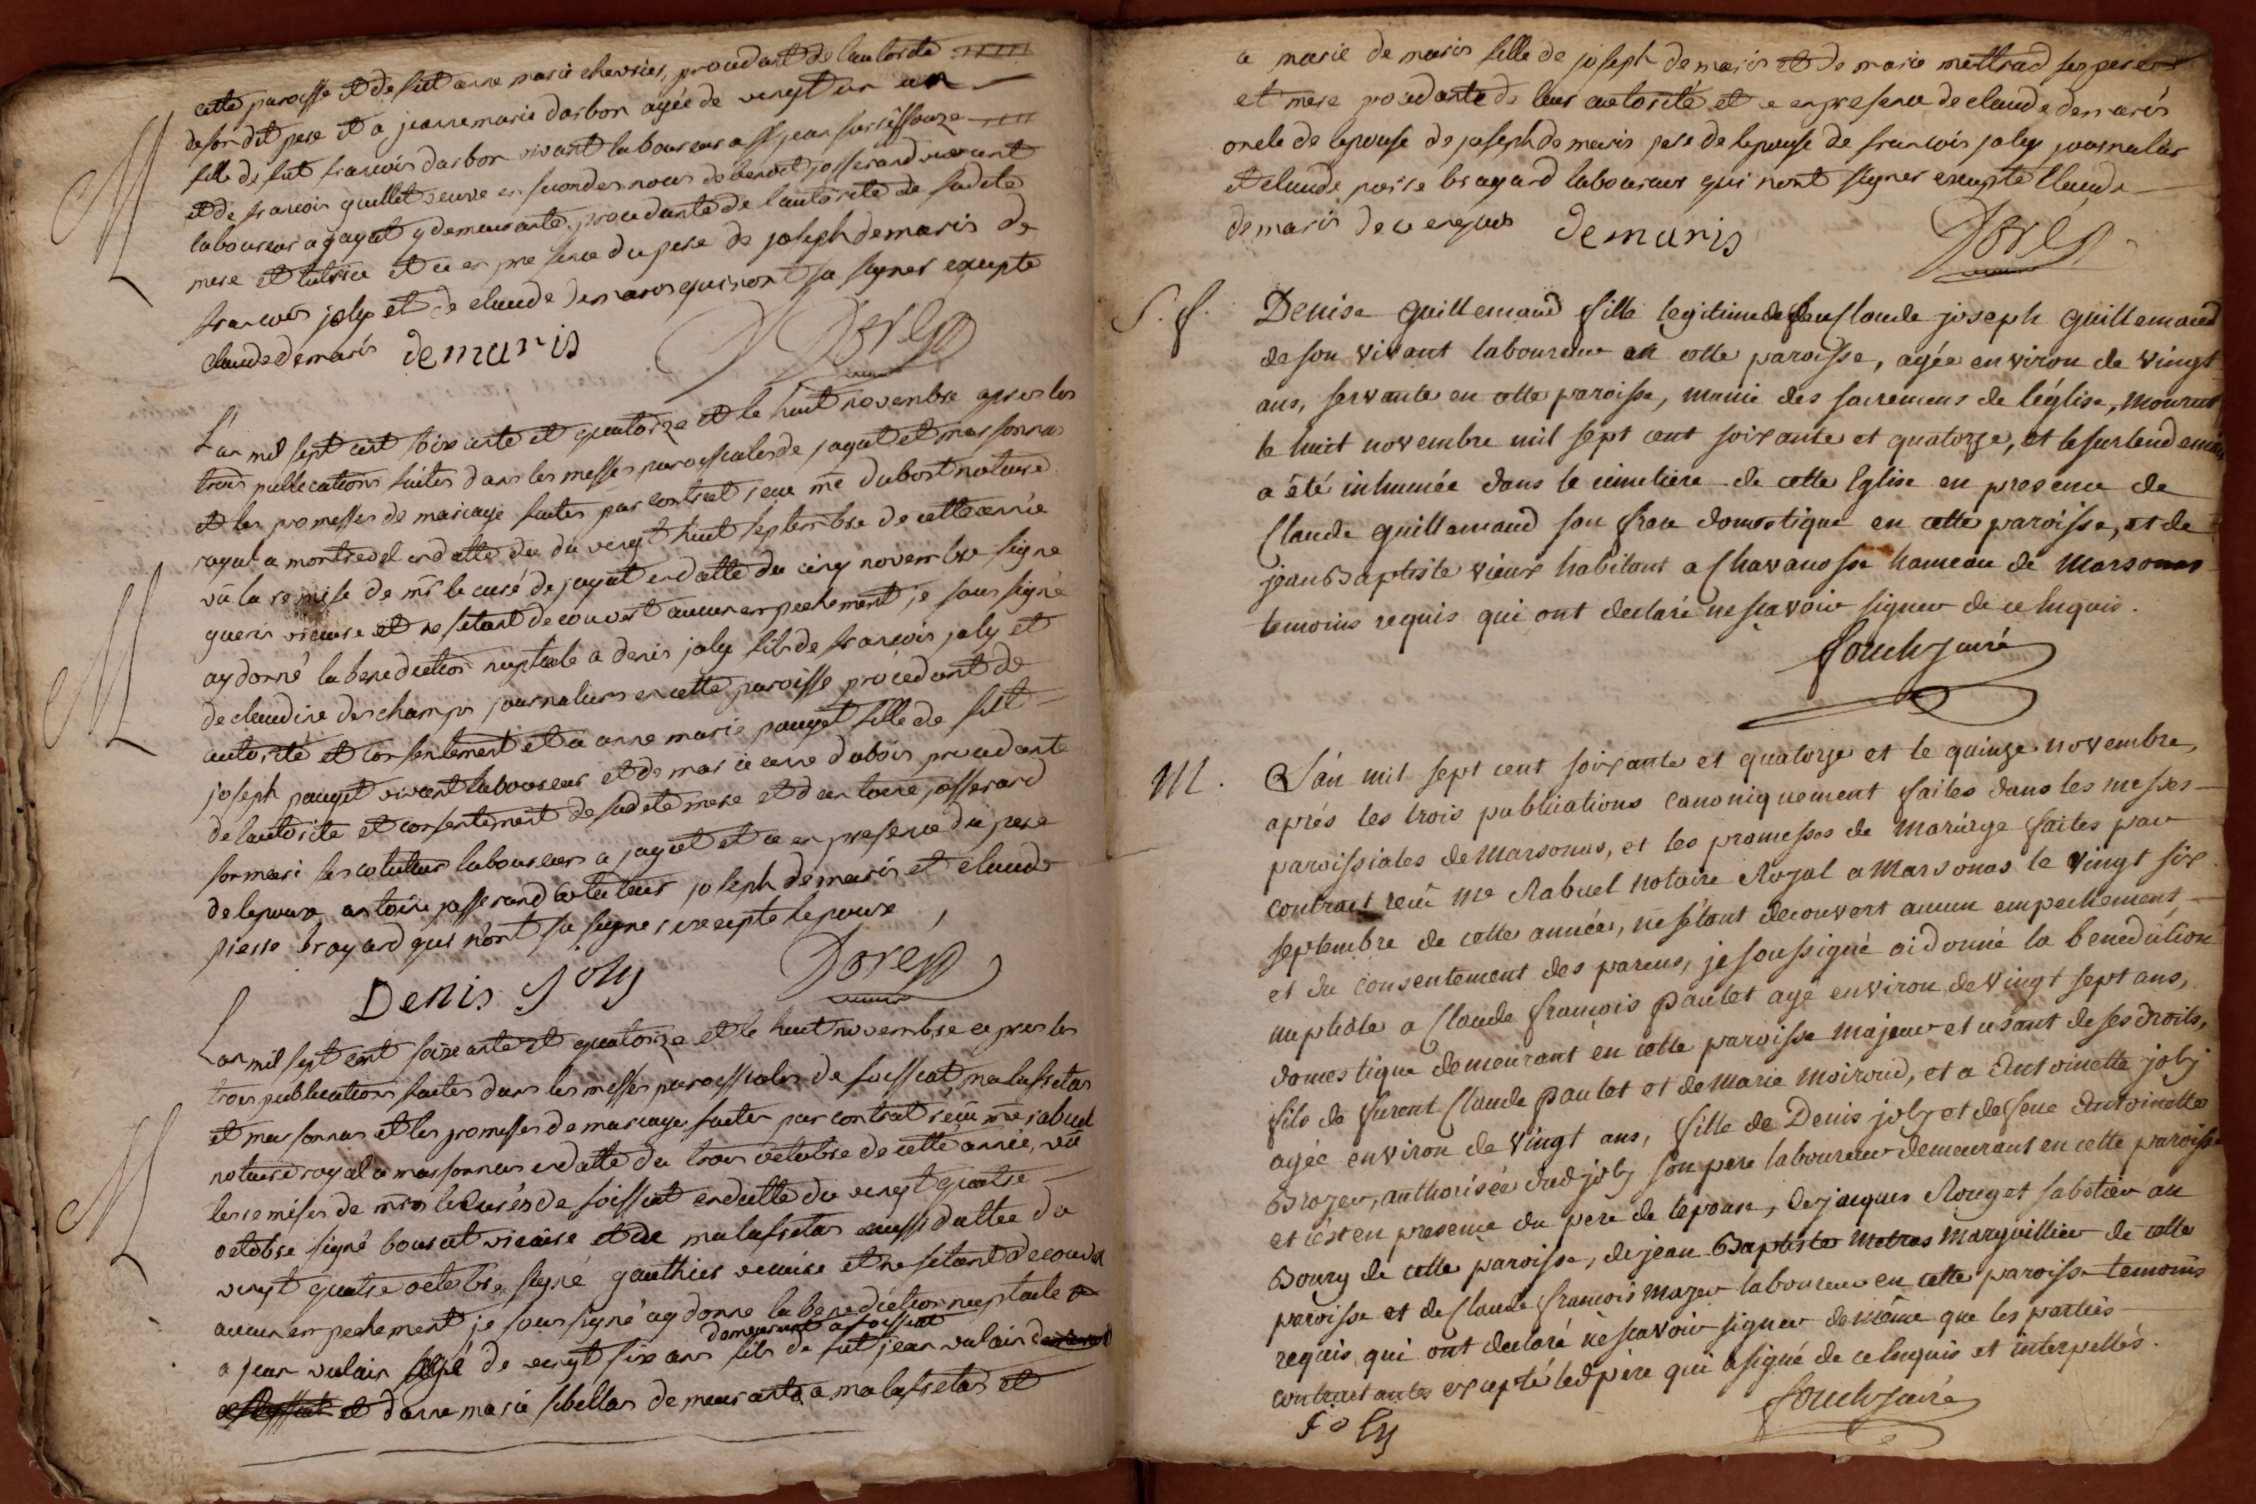 cette paroisse et de fut anne marie chevrier, procedant de lautorité
de son dit pere et a jeannemarie darbon agée de vingt un an
fille de fut francois darbon vivant laboureur a st jean sur reissouze
et de francoise guillet veuve en secondes noces de benoit josserand vivant
laboureur a jayat y demeurante, procedante de l'autorité de sadete
mere et tutrice et ce en presence du pere de joseph demaris de
francois joly et de claude demaris qui n'ont sa signer excepte
claude demaris demaris Dorel
M
L'an mil sept cent soixante et quatorze et le huit novembre apres les
trois publications faites dans les messes paroissiales de jayat et marsonnas
et les promesses de mariage faites par contract receu me dubost notaire
royal a montrevel en datte du du vingt huit septembre de cette année
vû la remise de mr le curé de jayat en datte du cinq novembre signé
guerin vicaire et ne setant decouvert aucun empechement je soussigné
ay donné la benediction nuptiale a denis joly fils de francois joly et
de claudine deschamps journaliers en cette paroisse procedant de
autorité et consentement et a anne marie pauget fille de fut
joseph pauget vivant laboureur et de marie anne dubois procedante
de lautorité et consentement de sadete mere et dantoine josserand
son mari ses cotuteur laboureurs a jayat et ce en presence du pere
de lepoux antoine josserand cotuteur joseph demaris et claude
pierre brayard qui n'ont sa signer excepte lepoux
Denis Joly Dorel
M
Lan mil sept cent soixante et quatorze et le huit novembre apres les
trois publications faites dans les messes paroissiales de foissiat, malafretas
et marsonnas et les promesses de mariage faites par contrat receu me rabuel
notaire royal a marsonnas en datte du trois octobre de cette année, vû
les remises de mrs les curés de foissiat en datte du vingt quatre
octobre signé bousat vicaire et de malafretas aussi dattée du
vingt quatre octobre signé gauthier vicaire et ne setant decouvert
aucun empechement je soussigné ay donné la benediction nuptiale
demeurant a foissiat
a jean vulain agé de vingt six ans fils de fut jean vulain
et danne marie sibellas demeurante a malafretas et
M
a marie de maris fille de joseph demaris et de marie mettrad ses pere
et mere procedante de leur autorité et ce en presence de claude demaris
oncle de lepouse de joseph demaris pere de lepouse de francois joly journalier
et claude pierre brayard laboureur qui n'ont signer excepte Claude
demaris de ce enquis demaris Dorel
S. f.
Denise Guillemaud fille legitime de feu Claude joseph Guillemaud
de son vivant laboureur en cette paroisse, agée environ de vingt
ans, servante en cette paroisse, munie des sacremens de l'église, mourut
le huit novembre mil sept cent soixante et quatorze, et le surlendemain
a été inhumée dans le cimetiere de cette Eglise en presence de
Claude Guillemaud son frere domestique en cette paroisse, et de
jean Baptiste vieux habitant a Chavanosse hameau de Marsonas
temoins requis qui ont declaré ne sçavoir signer de ce enquis.
fouchy curé
M.
L'an mil sept cent soixante et quatorze et le quinze novembre,
aprés les trois publications canoniquement faites dans les messes
paroissiales de Marsonas, et les promesses de mariage faites par
contract reçû me Rabuel notaire Royal a Marsonas le vingt six
septembre de cette année, ne s'étant decouvert aucun empechement,
et du consentement des parens, je soussigné ai donné la benediction
nuptiale a Claude françois Paulet agé environ de vingt sept ans,
domestique demeurant en cette paroisse majeur et usant de ses droits,
fils de furent Claude Paulet et de Marie Moiroud, et a Antoinette joly
agée environ de vingt ans, fille de Denis joly et de feue Antoinette
Brozer, authorisée dud joly son pere laboureur demeurant en cette paroisse
et c'est en presence du pere de lepouse, de jacques Rouget sabotier au
Bourg de cette paroisse, de jean Baptiste Metras Marguillier de cette
paroisse et de Claude françois Mazer laboureur en cette paroisse temoins
requis qui ont declaré ne sçavoir signer de même que les parties
contractantes excepté led père qui a signé de ce enquis et interpellés.
joly fouchy curé